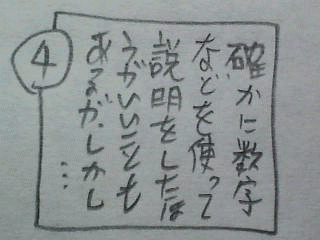 ④
確かに数字
などを使って
説明をしたほ
うがいいことも
あるが、しかし
…